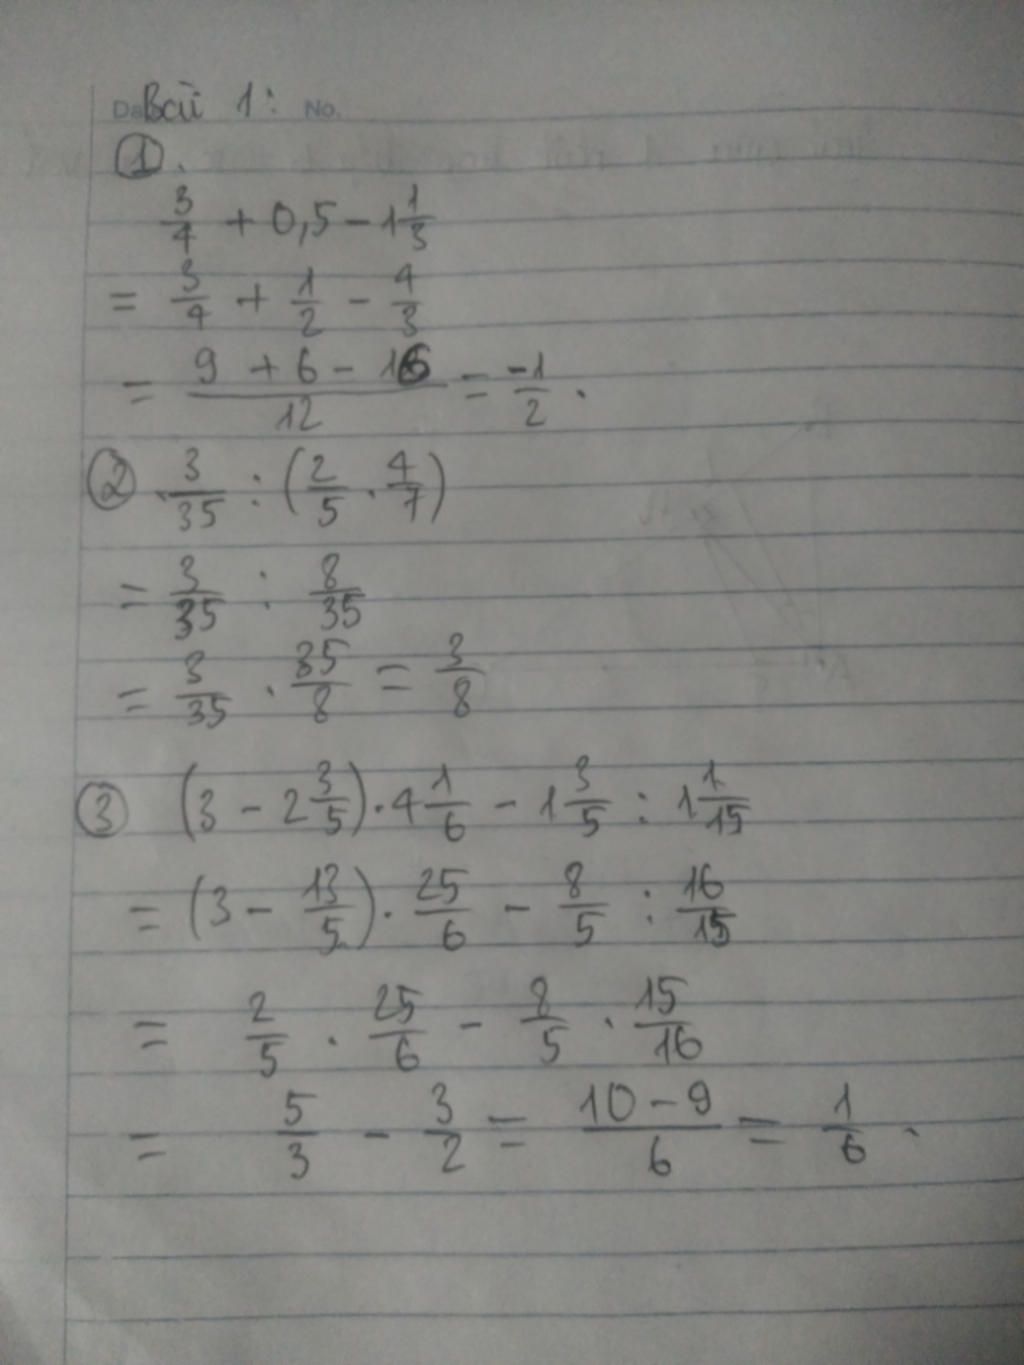 Bài 1:
Da No.
①.
3/4 + 0,5 - 1 1/3
= 3/4 + 1/2 - 4/3
= (9 + 6 - 16)/12 = -1/2 .
② . 3/35 : (2/5 . 4/7)
= 3/35 : 8/35
= 3/35 . 35/8 = 3/8
③ (3 - 2 3/5) . 4 1/6 - 1 3/5 : 1 1/15
= (3 - 13/5) . 25/6 - 8/5 : 16/15
= 2/5 . 25/6 - 8/5 . 15/16
= 5/3 - 3/2 = (10 - 9)/6 = 1/6 .